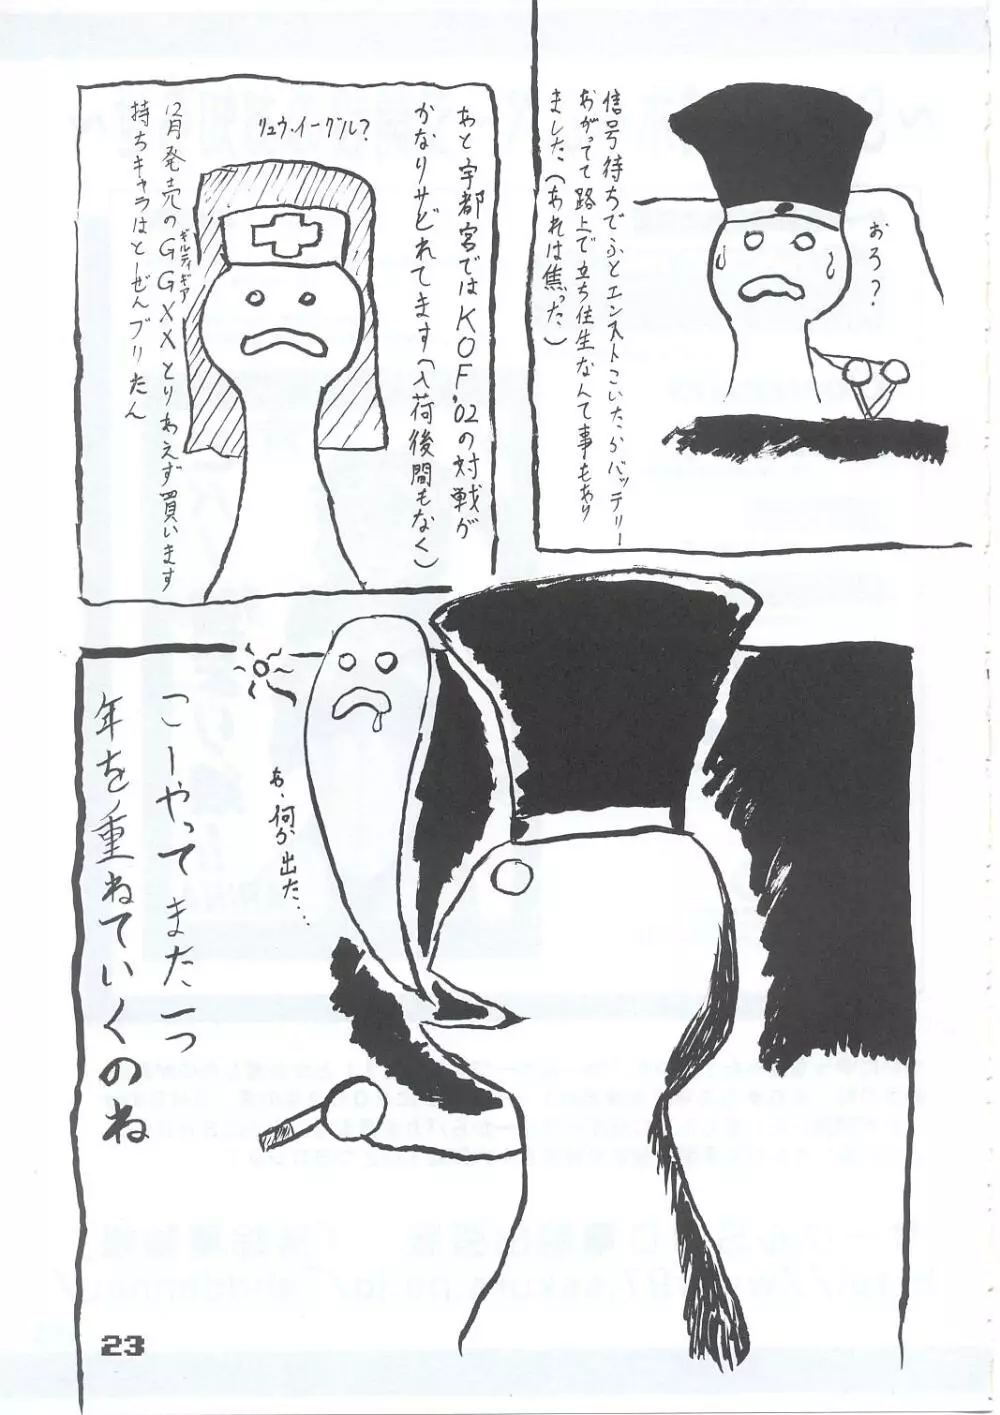 信号待ちでふとエンストこいたかバッテリー
あがってて路上で立ち往生なんて事もあり
ました（あれは焦った）
おろ？
あと宇都宮ではKOF.'02の対戦が
かなりサビれてます（入荷後間もなく）
リュウ・イーグル？
12月発売のGGXXとりあえず買います
ギルティギア
持ちキャラはとーぜんブリたん
あ、何か出た…
こーやってまた一つ
年を重ねていくのね
23